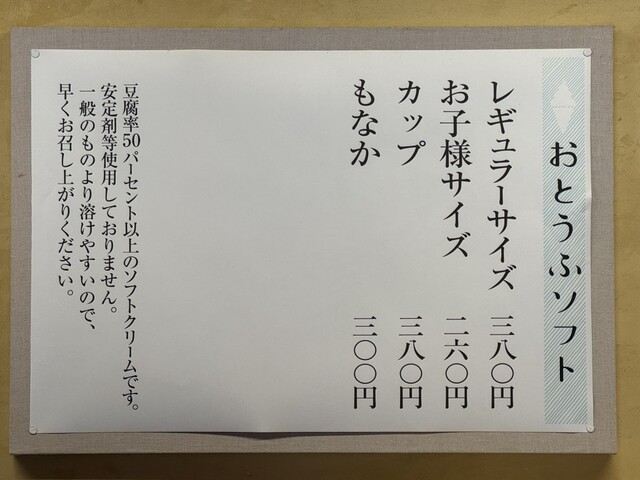 おとうふソフト
レギュラーサイズ 三八〇円
お子様サイズ 二六〇円
カップ 三八〇円
もなか 三〇〇円
豆腐率50パーセント以上のソフトクリームです。
安定剤等使用しておりません。
一般のものより溶けやすいので、
早くお召し上がりください。